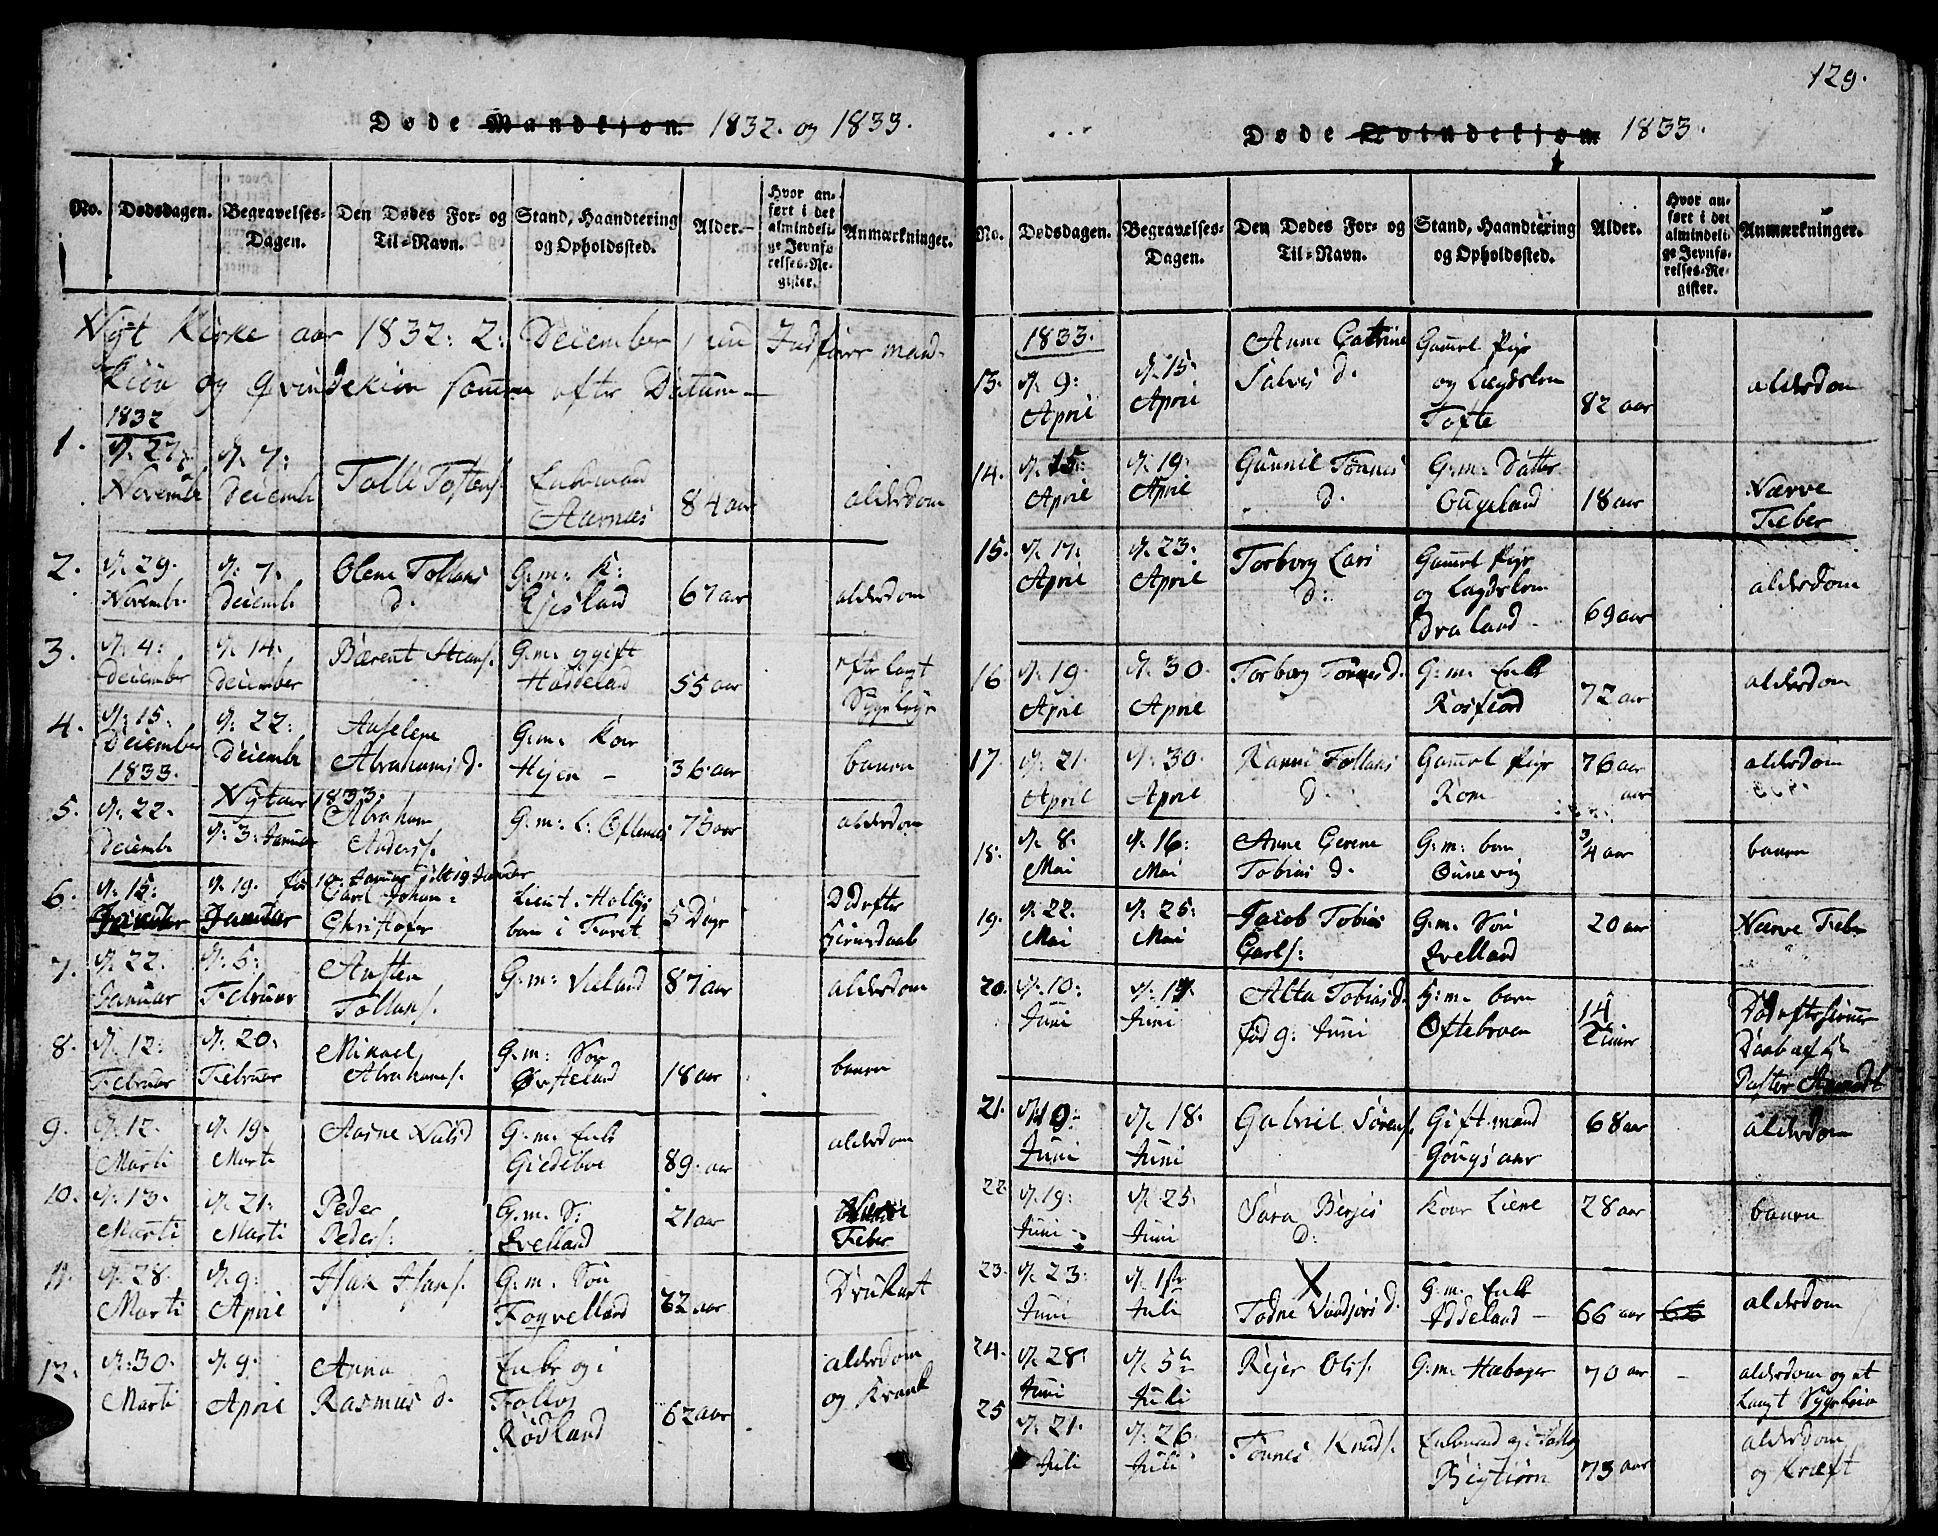 Døde Mandkjøn. 1832. og 1833.
No. Dødsdagen. Begravelses-Dagen. Den Dødes For- og Til-Navn. Stand, Haandtering og Opholdssted. Alder. Hvor anført i det almindelige Jevnførelses-Register. Anmærkninger.
Nyt Kirke aar 1832: 2: Deiember
Kiøn og Qvindekiøn efter Datum
1832
1. d. 27 Novembr d. 7: Deiembr Tolli Tostens. Enkemand Aarnæs 84 aar alderdom
2. d. 29. Novembr d. 7. Deiembr Olene Tollaus d. G:m: K: Ejesland 67 aar alderdom
3. d. 4: Deiember d. 14. Deiember Bærent Stians. G:m: gift Haddeland 55 aar efter lagt
4. d. 15. Deiember d. 22: Deiembr Anselene Abrahams d. G:m: Kone 36 aar baaren
1833.
Nytaar 1833.
5. d. 22. Deiembr d. 3: Januar Abraham Anders. G:m: L: Oftenæs 75 aar alderdom
6. d. 15: Januar d. 19. Januar Carl Johan Christofer Lieut. Holbÿs barn i Faret 5 Døgn Død efter
7. d. 22. Januar d. 5: Februar Austen Tollaus. G:m: Vieland 87 aar alderdom
8. d. 12: Februar d. 20: Februar Mikael Abrahams. G:m: Søn Østeland 18 aar baaren
9. d. 12. Marti d. 19. Marti Aasne Nielsd G:m: Enke Giedeboe 89 aar alderdom
10. d. 13. Marti d. 21. Marti Peder Peders. G:m: S: Qvelland 21 aar Feber
11. d. 28. Marti d. 9: April Isak Isaks. G:m. Søn Fogvelland 62 aar Drukort
12. d. 30. Marti d. 9. April Anna Rasmus d. Enke og i Følløs Rødland 62 aar alderdom og Krank
129.
Døde Qvindekjøn 1833.
No. Dødsdagen. Begravelses-Dagen. Den Dødes For- og Til-Navn. Stand, Haandtering og Opholdssted. Alder. Hvor anført i det almindelige Jevnførelses-Register. Anmærkninger.
1833.
13. d. 9: April d. 15: April Anne Catrine Salvis d. Gamel Pige og Lægdslem Tofte 82 aar alderdom
14. d. 15: April d. 19: April Gunnil Tønnes d. G:m: Datter Ougeland 18 aar Nærve Feber
15. d. 17: April d. 23. April Torborg Lars d: Gamel Pige og Lagdslem Draland 69 aar alderdom
16. d. 19. April d. 30. April Torborg Tønnes d. G:m: Enke Rosfiord 72 aar alderdom
17. d. 21. April d. 30. April Ranni Tollaus d. Gamel Pige Rom 76 aar aar alderdom
18. d. 8. Mai d. 16: Mai Anne Gerene Tobias d. G:m: barn Ounevig 3/4 aar baaren
19. d. 22. Mai d. 25: Mai Jacob Tobias Carls: G:m. Søn Qvelland 20 aar Nærve Feber
20. d. 10: Juni d. 14. Juni Alta Tobias d. fød 9: Juni G:m. barn Oftebroen 14 Timer
21. d. 10: Juni d. 18: Juni Gabriel Sørens. Gift mand 68 aar alderdom
22. d. 19: Juni d. 25. Juni Sara Berjes d: Kone Liene 28 aar baaren
23. d. 23: Juni d. 1ste Juli X Todne d. G:m: Enke Iddeland 66 aar 66 alderdom
24. d. 28. Juni d. 5te Juli Rejer Ols. G:m: Habager 70 aar alderdom og et langt
25 d. 21. Juli d. 26. Juli Tønnes Knuds. Enkmand og i Følløs 73 aar alderdom og Kræft